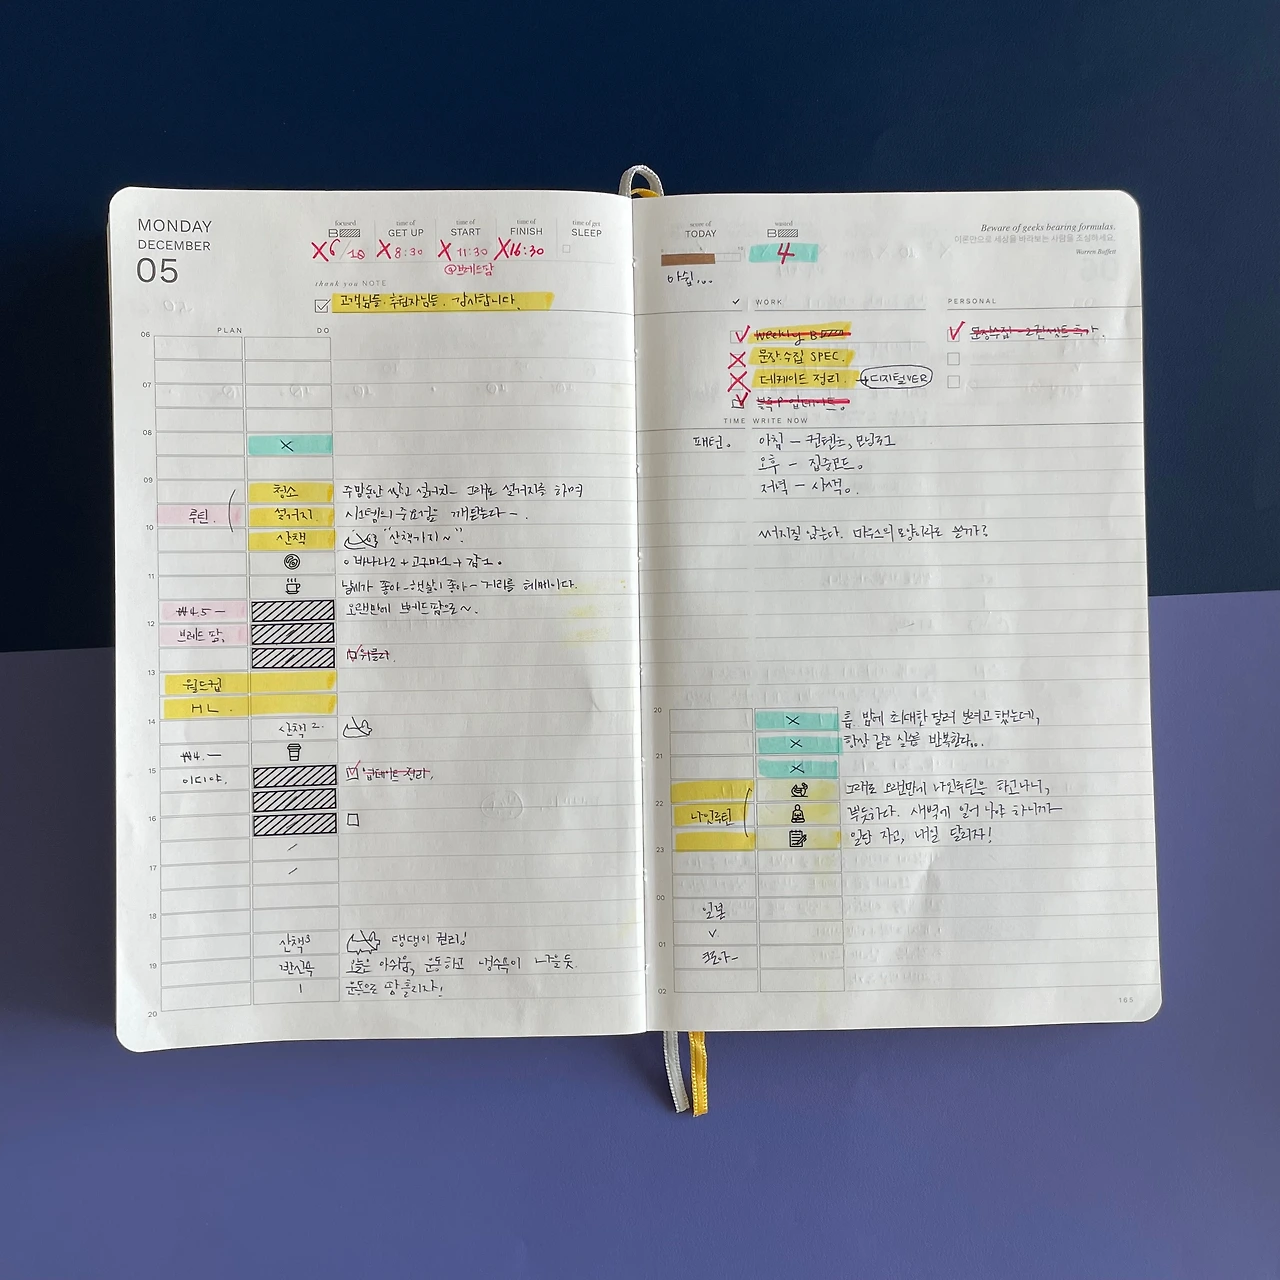 MONDAY
DECEMBER
05
focused
B
X6 /10
time of
GET UP
X 8:30
time of
START
X 11:30
@브레드팜
time of
FINISH
X 16:30
time of get
SLEEP
thank you NOTE
고객님들. 후원자님들. 감사합니다.
PLAN
DO
06
07
08
X
09
청소
주말동안 쌓인 설거지~ 그래도 설거지를 하며
루틴.
설거지.
시스템의 중요성을 깨닫는다~.
10
산책
"산책가지~".
바나나2 + 고구마1 +
11
날씨가 좋아~ 햇살이 좋아~ 거리를 헤메이다.
₩4.5 —
오랜만에 브레드팜으로~.
12
브레드팜.
13
월드컵
H L .
14
산책 2.
₩4.—
15
이디야.
업데이트 정리.
16
17
18
산책3
댕댕이 퀄리!
19
반신욕
오늘은 아쉬움, 운동하고 냉수욕이 나을듯.
운동으로 땀 흘리자!
20
score of
TODAY
아쉽...
wasted
B
4
Beware of geeks bearing formulas.
이론만으로 세상을 바라보는 사람을 조심하세요.
Warren Buffett
WORK
PERSONAL
Weekly B
문장수집 SPEC.
데케이드 정리. + 디지털VER
블록P 업데이트.
문장수집 - 2권세트 추가.
TIME
WRITE NOW
패턴.
아침 — 컨텐츠, 모닝로그
오후 — 집중모드.
저녁 — 사색.
써지질 않는다. 마우스의 모양이라도 볼까?
20
X
흠. 밤에 최대한 달려 보려고 했는데,
21
X
항상 같은 실수를 반복한다...
X
그래도 오랜만에 나인루틴을 하고나니,
22
나인루틴
뿌듯하다. 새벽에 일어나야 하니까—
일단 자고, 내일 달리자!
23
00
일본
V
01
크로아-
02
165